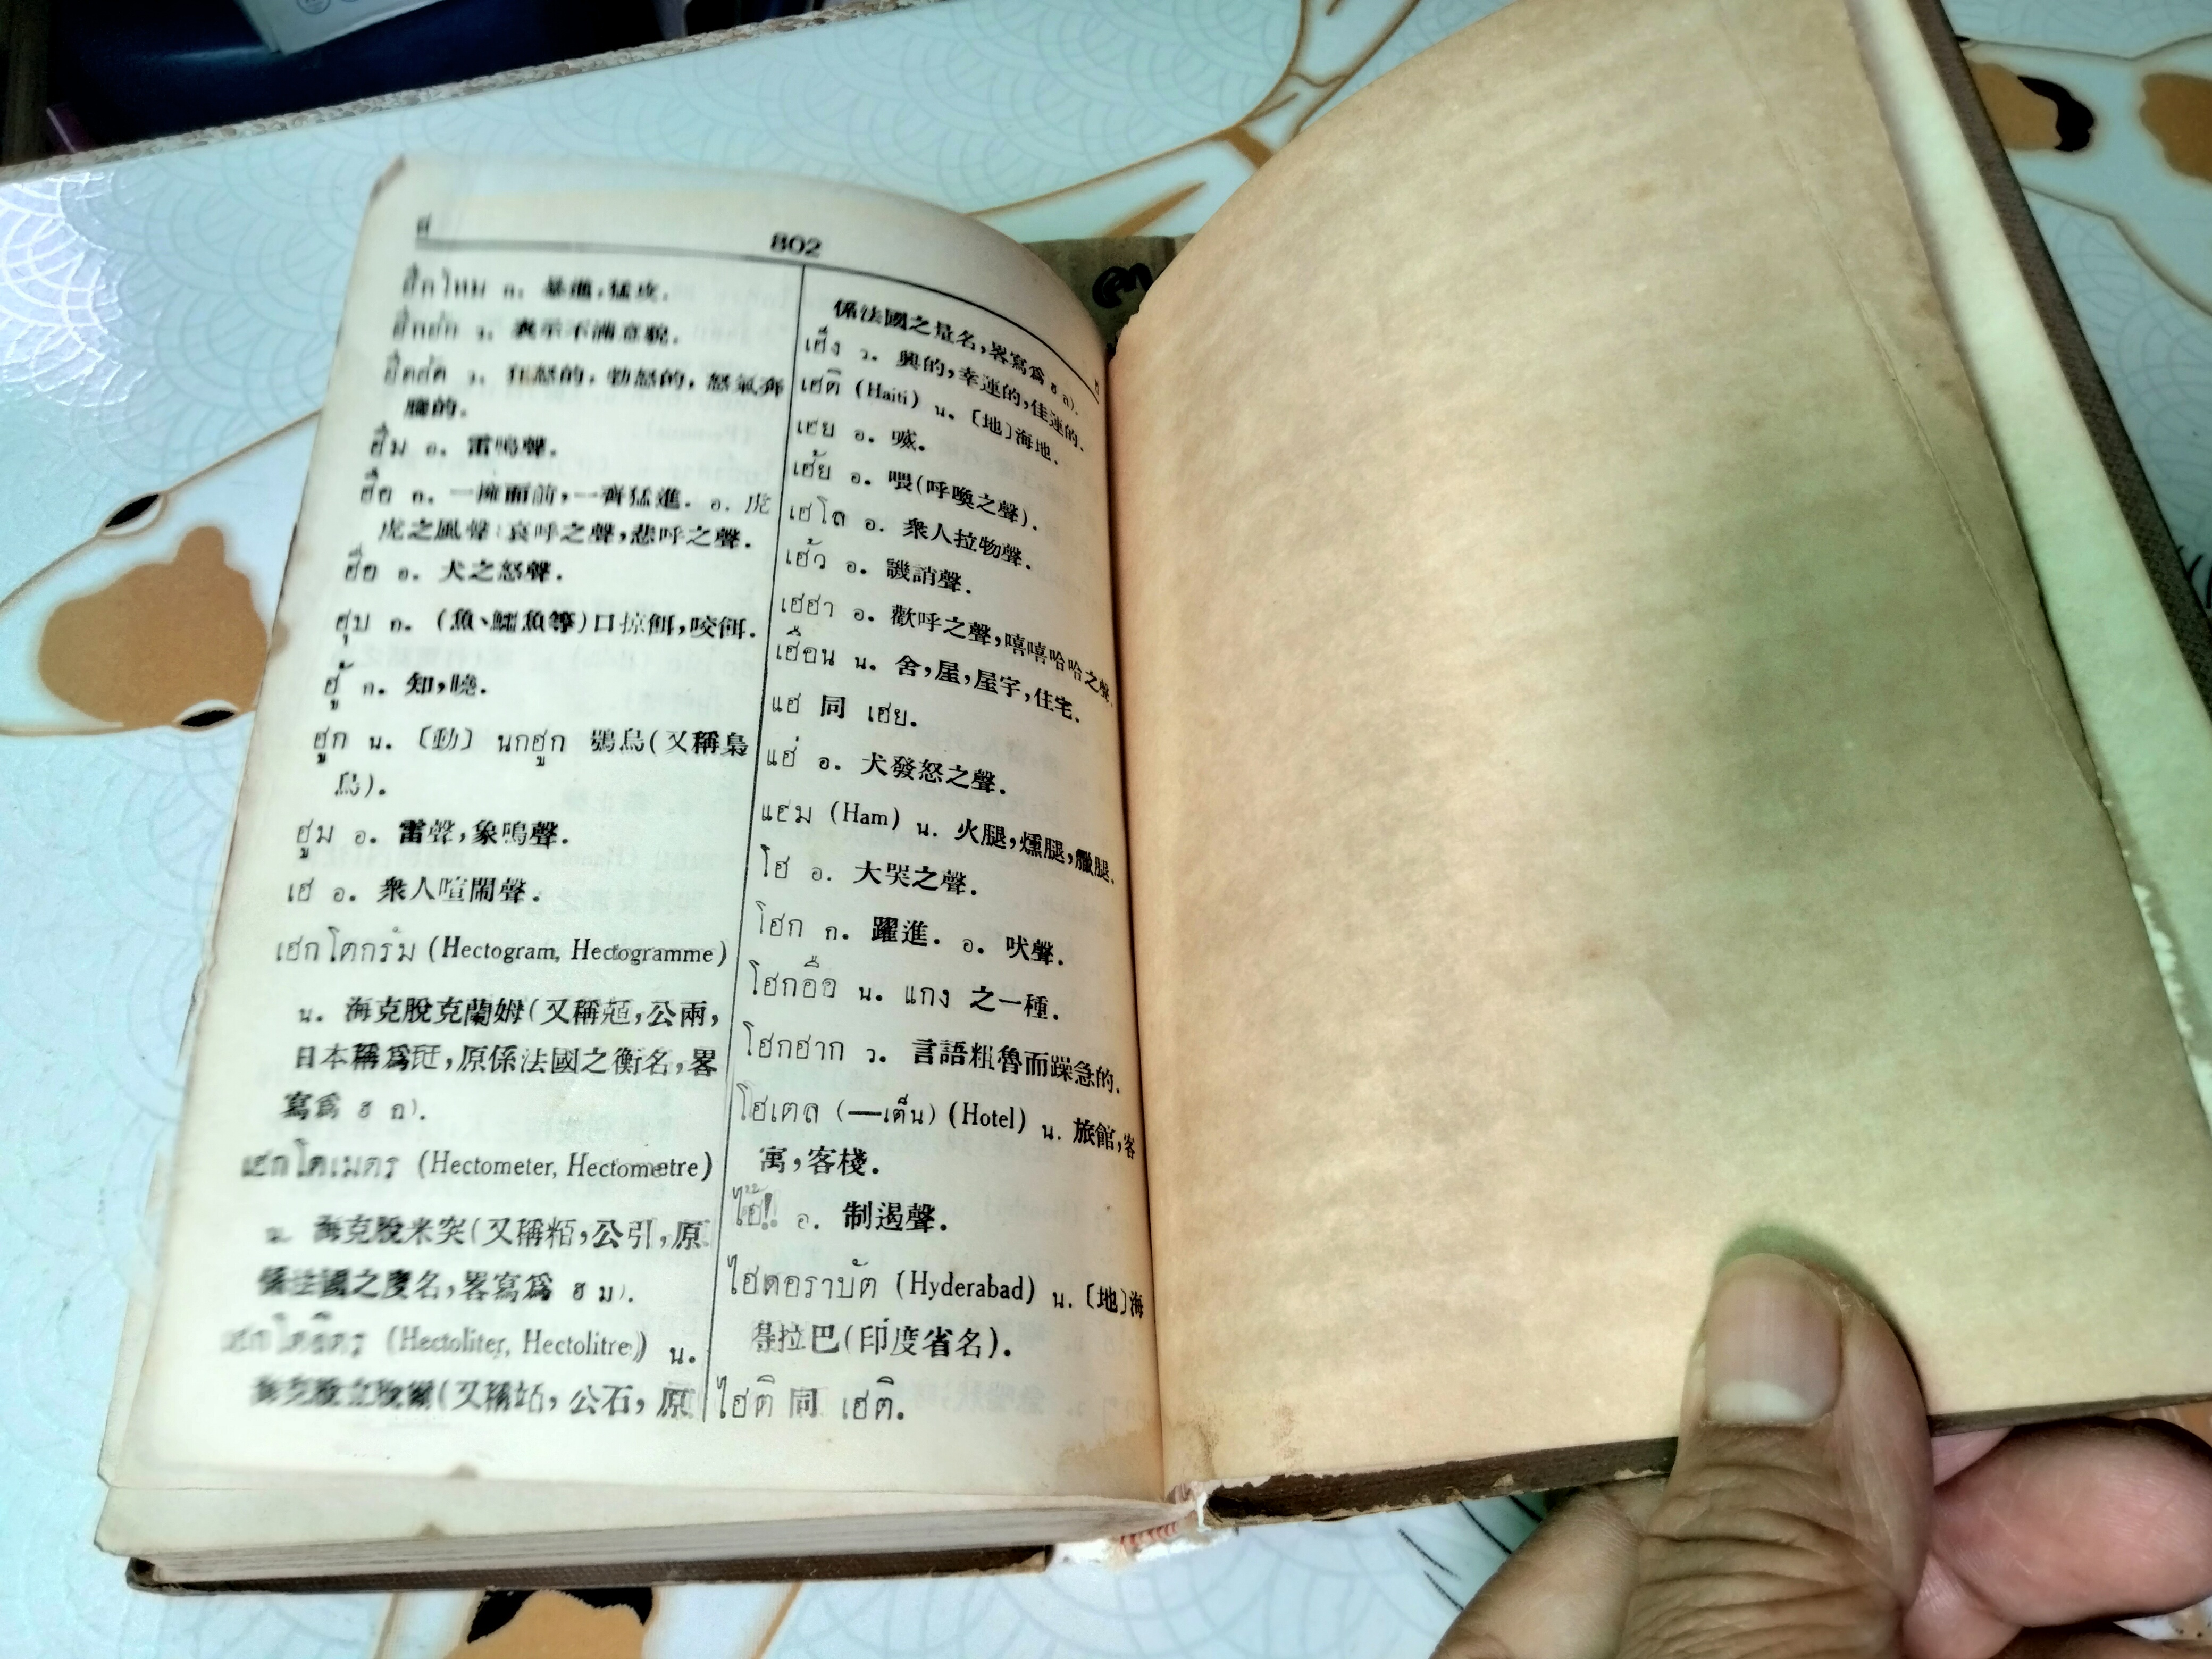 ฮ
802
ฮึกโหม ก. 暴進,猛攻.
ฮึกฮัก ว. 表示不滿意貌.
ฮึดฮัด ว. 狂怒的,勃怒的,怒氣奔
騰的.
ฮึม อ. 雷鳴聲.
ฮือ ก. 一擁而前,一齊猛進. อ. 虎
虎之風聲:哀呼之聲,悲呼之聲.
ฮื่อ อ. 犬之怒聲.
ฮุบ ก. (魚、鱷魚等)口掠餌,咬餌.
ฮู้ ก. 知,曉.
ฮูก น. 〔動〕 นกฮูก 鴞鳥(又稱梟
鳥).
ฮูม อ. 雷聲,象鳴聲.
เฮ อ. 衆人喧鬧聲.
เฮกโตกรัม (Hectogram, Hectogramme)
น. 海克脫克蘭姆(又稱兡,公兩,
日本稱爲瓸,原係法國之衡名,畧
寫爲 ฮ ก).
เฮกโตเมตร (Hectometer, Hectometre)
น. 海克脫米突(又稱粨,公引,原
係法國之度名,畧寫爲 ฮ ม).
เฮกโตลิตร (Hectoliter, Hectolitre) น.
海克脫立脫爾(又稱竡,公石,原
係法國之量名,畧寫爲 ฮ ล).
เฮ็ง ว. 興的,幸運的,佳運的.
เฮติ (Haiti) น. 〔地〕海地.
เฮย อ. 嘁.
เฮ้ย อ. 喂(呼喚之聲).
เฮโล อ. 衆人拉物聲.
เฮ้ว อ. 譏誚聲.
เฮฮา อ. 歡呼之聲,嘻嘻哈哈之聲.
เฮือน น. 舍,屋,屋宇,住宅.
แฮ 同 เฮย.
แฮ่ อ. 犬發怒之聲.
แฮม (Ham) น. 火腿,燻腿,臘腿.
โฮ อ. 大哭之聲.
โฮก ก. 躍進. อ. 吠聲.
โฮกอือ น. แกง 之一種.
โฮกฮาก ว. 言語粗魯而躁急的.
โฮเตล (—เต็น) (Hotel) น. 旅館,客
寓,客棧.
ไฮ้!! อ. 制遏聲.
ไฮดอราบัด (Hyderabad) น. 〔地〕海
得拉巴(印度省名).
ไฮติ 同 เฮติ.